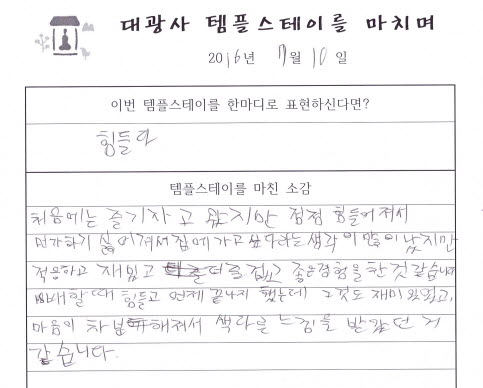 대광사 템플스테이를 마치며
2016년 7월 10일
이번 템플스테이를 한마디로 표현하신다면?
힘들다
템플스테이를 마친 소감
처음에는 즐기자고 왔지만 점점 힘들어져서
먼가하기 싫어져서 집에 가고 싶다라는 생각이 많이 났지만
적응하고 재밌고 더 즐겁고 좋은경험을 한 것 같습니다
108배할때 힘들고 언제 끝나지 했는데 그것도 재미있었고,
마음이 차분해져서 색다른 느낌을 받았던 거
같습니다.